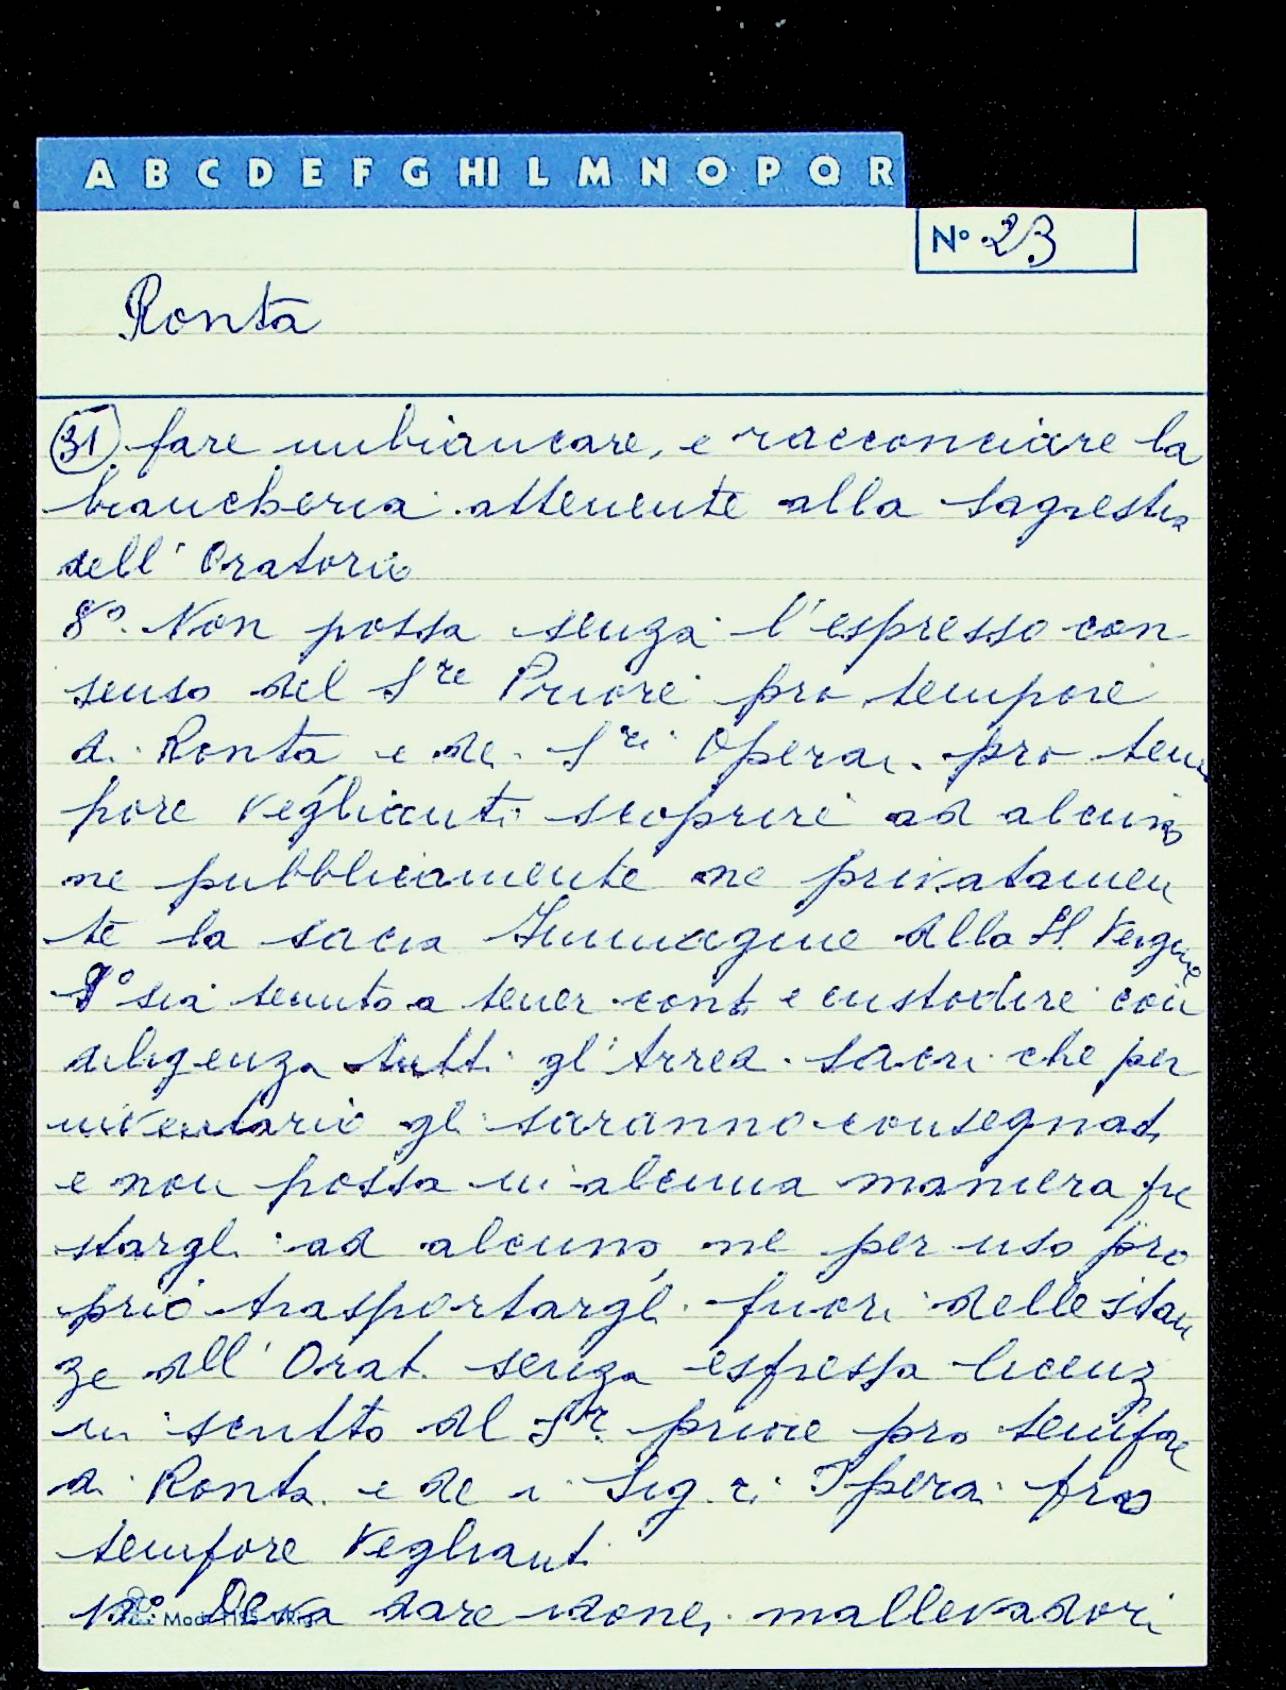 A B C D E F G HI L M N O P Q R
N° 23
Ronta
(31) fare imbiancare, e racconciare la
biancheria attenente alla sagrestia
dell'Oratorio
8°. Non possa senza l'espresso con
senso del Sre Priore pro tempore
di Ronta e dei Sri Operai pro tem
pore veglianti scoprire ad alcuno
ne pubblicamente ne privatamen
te la sacra Immagine della SS. Vergine
9° sia tenuto a tener conto e custodire con
diligenza tutti gl'Arredi sacri che per
inventario gli saranno consegnati
e non possa in alcuna maniera pre
stargli ad alcuno, ne per uso pro
prio trasportargli fuori delle stan
ze dell'Orat. senza espressa licenza
in scritto del Sr. priore pro tempore
di Ronta e dei Sig.ri Operai pro
tempore Veglianti
10° Deva dare idonei mallevadori